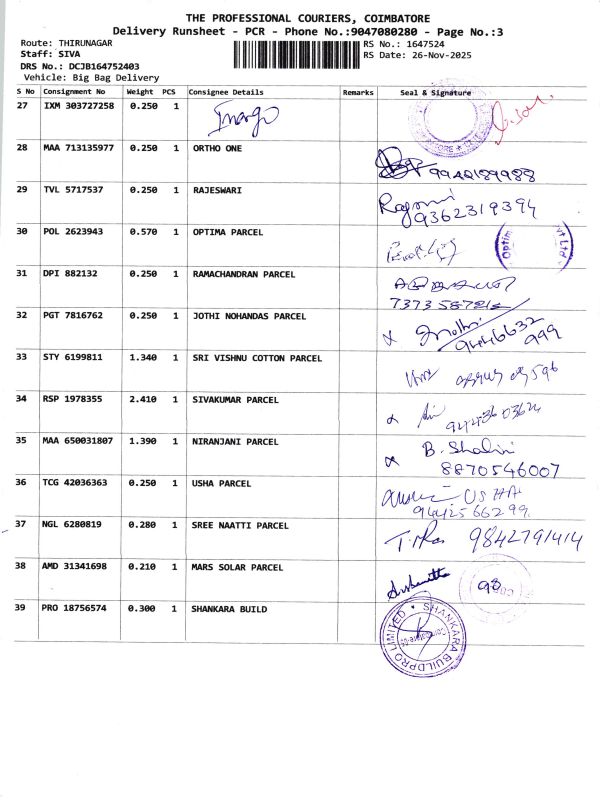 THE PROFESSIONAL COURIERS, COIMBATORE
Delivery Runsheet - PCR - Phone No.:9047080280 - Page No.:3
Route: THIRUNAGAR RS No.: 1647524
Staff: SIVA RS Date: 26-Nov-2025
DRS No.: DCJB164752403
Vehicle: Big Bag Delivery
S No Consignment No Weight PCS Consignee Details Remarks Seal & Signature
27 IXM 303727258 0.250 1
28 MAA 713135977 0.250 1 ORTHO ONE
9942189988
29 TVL 5717537 0.250 1 RAJESWARI
9362319394
30 POL 2623943 0.570 1 OPTIMA PARCEL
31 DPI 882132 0.250 1 RAMACHANDRAN PARCEL
32 PGT 7816762 0.250 1 JOTHI NOHANDAS PARCEL
Jothi
9446632
999
33 STY 6199811 1.340 1 SRI VISHNU COTTON PARCEL
34 RSP 1978355 2.410 1 SIVAKUMAR PARCEL
35 MAA 650031807 1.390 1 NIRANJANI PARCEL
B. Shalini
8870546007
36 TCG 42036363 0.250 1 USHA PARCEL
USHA
9442566299
37 NGL 6280819 0.280 1 SREE NAATTI PARCEL
9842791414
38 AMD 31341698 0.210 1 MARS SOLAR PARCEL
39 PRO 18756574 0.300 1 SHANKARA BUILD
SHANKARA BUILDPRO LIMITED